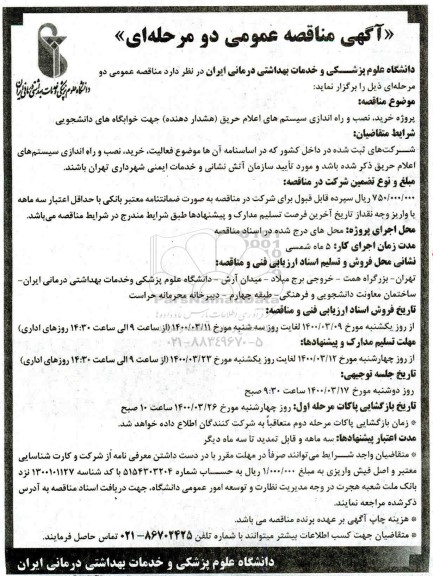 «آگهی مناقصه عمومی دو مرحله‌ای»
دانشگاه علوم پزشکی و خدمات بهداشتی درمانی ایران
دانشگاه علوم پزشکی و خدمات بهداشتی درمانی ایران در نظر دارد مناقصه عمومی دو
مرحله‌ای ذیل را برگزار نماید:
موضوع مناقصه:
پروژه خرید، نصب و راه اندازی سیستم های اعلام حریق (هشدار دهنده) جهت خوابگاه های دانشجویی
شرایط متقاضیان:
شرکت‌های ثبت شده در داخل کشور که در اساسنامه آن ها موضوع فعالیت، خرید، نصب و راه اندازی سیستم‌های
اعلام حریق ذکر شده باشد و مورد تأیید سازمان آتش نشانی و خدمات ایمنی شهرداری تهران باشند.
مبلغ و نوع تضمین شرکت در مناقصه:
۷۵۰/۰۰۰/۰۰۰ ریال سپرده قابل قبول برای شرکت در مناقصه به صورت ضمانتنامه معتبر بانکی با حداقل اعتبار سه ماهه
یا واریز وجه نقد از تاریخ آخرین فرصت تسلیم مدارک و پیشنهادها طبق شرایط مندرج در شرایط مناقصه می‌باشد.
محل اجرای پروژه: محل های درج شده در اسناد مناقصه
مدت زمان اجرای کار: ۵ ماه شمسی
نشانی محل فروش و تسلیم اسناد ارزیابی فنی و مناقصه:
تهران- بزرگراه همت - خروجی برج میلاد - میدان آرش - دانشگاه علوم پزشکی وخدمات بهداشتی درمانی ایران-
ساختمان معاونت دانشجویی و فرهنگی- طبقه چهارم - دبیرخانه محرمانه حراست
تاریخ فروش اسناد ارزیابی فنی و مناقصه:
از روز یکشنبه مورخ ۱۴۰۰/۰۳/۰۹ لغایت روز سه شنبه مورخ ۱۴۰۰/۰۳/۱۱ (از ساعت ۹ الی ساعت ۱۴:۳۰ روزهای اداری)
مهلت تسلیم مدارک و پیشنهادها:
۰۲۱-۸۸۳۴۹۶۷۰-۵
از روز چهارشنبه مورخ ۱۴۰۰/۰۳/۱۲ لغایت روز یکشنبه مورخ ۱۴۰۰/۰۳/۲۳ (از ساعت ۹ الی ساعت ۱۴:۳۰ روزهای اداری)
تاریخ جلسه توجیهی:
روز دوشنبه مورخ ۱۴۰۰/۰۳/۱۷ ساعت ۹:۳۰ صبح
تاریخ بازگشایی پاکات مرحله اول: روز چهارشنبه مورخ ۱۴۰۰/۰۳/۲۶ ساعت ۱۰ صبح
* زمان بازگشایی پاکات مرحله دوم متعاقباً به شرکت کنندگان اطلاع داده خواهد شد.
مدت اعتبار پیشنهادها: سه ماهه و قابل تمدید تا سه ماه دیگر
* متقاضیان واجد شرایط می‌توانند صرفاً در مهلت مقرر با در دست داشتن معرفی نامه از شرکت و کارت شناسایی
معتبر و اصل فیش واریزی به مبلغ ۱/۰۰۰/۰۰۰ ریال به حساب شماره ۵۱۵۴۳۰۳۲۰۴ با کد شناسه ۱۳۰۰۱۰۱۱۲۷ نزد
بانک ملت شعبه هجرت در وجه مدیریت نظارت و توسعه امور عمومی دانشگاه، جهت دریافت اسناد مناقصه به آدرس
ذکرشده مراجعه نمایند.
* هزینه چاپ آگهی بر عهده برنده مناقصه می باشد.
* متقاضیان جهت کسب اطلاعات بیشتر میتوانند با شماره تلفن ۸۶۷۰۲۴۲۵-۰۲۱ تماس حاصل فرمایند.
دانشگاه علوم پزشکی و خدمات بهداشتی درمانی ایران